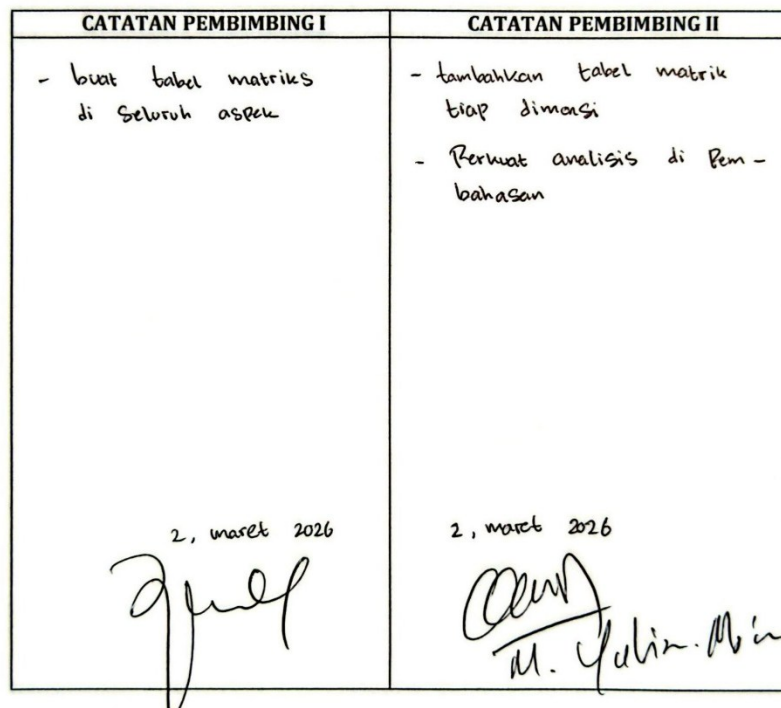 CATATAN PEMBIMBING I
- buat tabel matriks
di seluruh aspek
2, maret 2026
CATATAN PEMBIMBING II
- tambahkan tabel matrik
tiap dimensi
- Perkuat analisis di Pem-
bahasan
2, maret 2026
M.